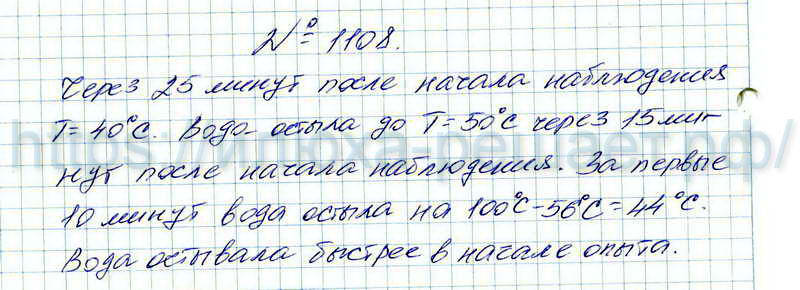 № 1108.
Через 25 минут после начала наблюдения
T = 40°C. Вода остыла до T = 50°C через 15 ми-
нут после начала наблюдения. За первые
10 минут вода остыла на 100°C - 56°C = 44°C.
Вода остывала быстрее в начале опыта.